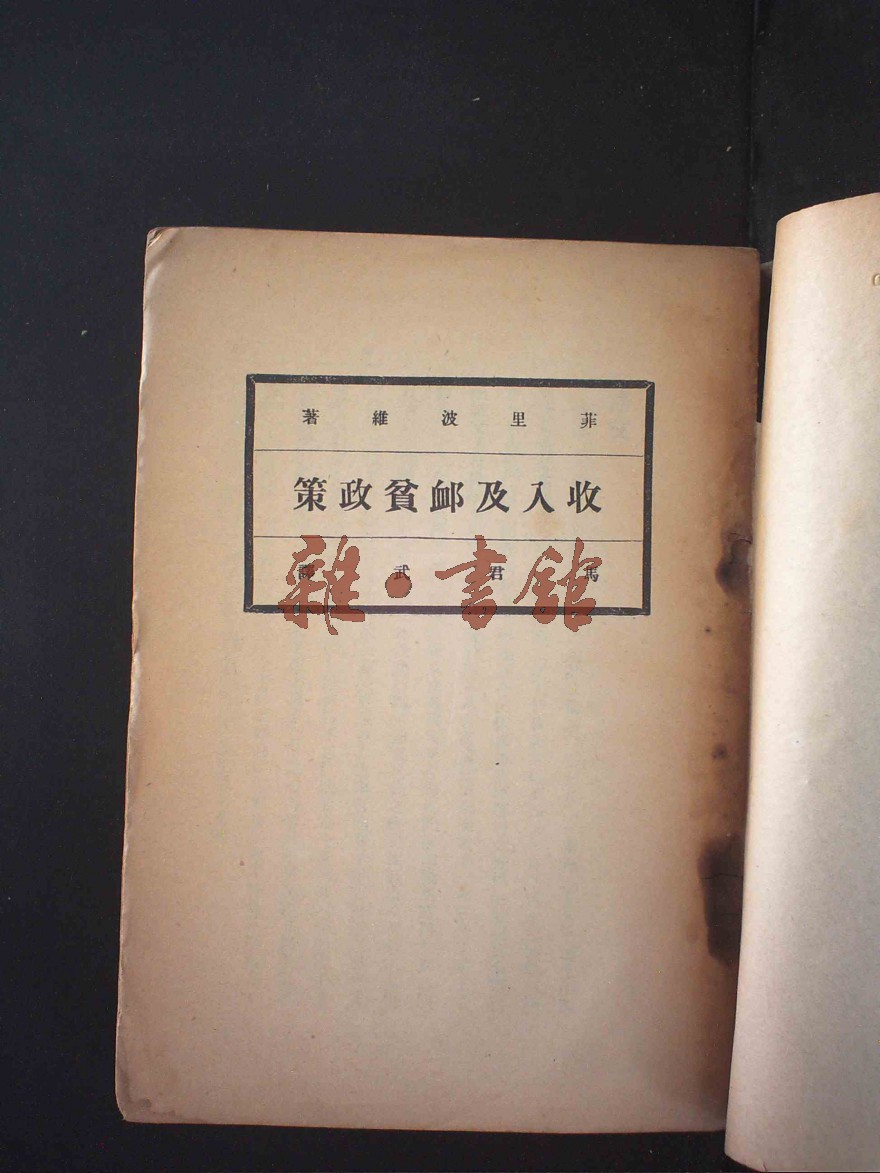 菲里波維著
收入及卹貧政策
馬君武譯
雜·書館